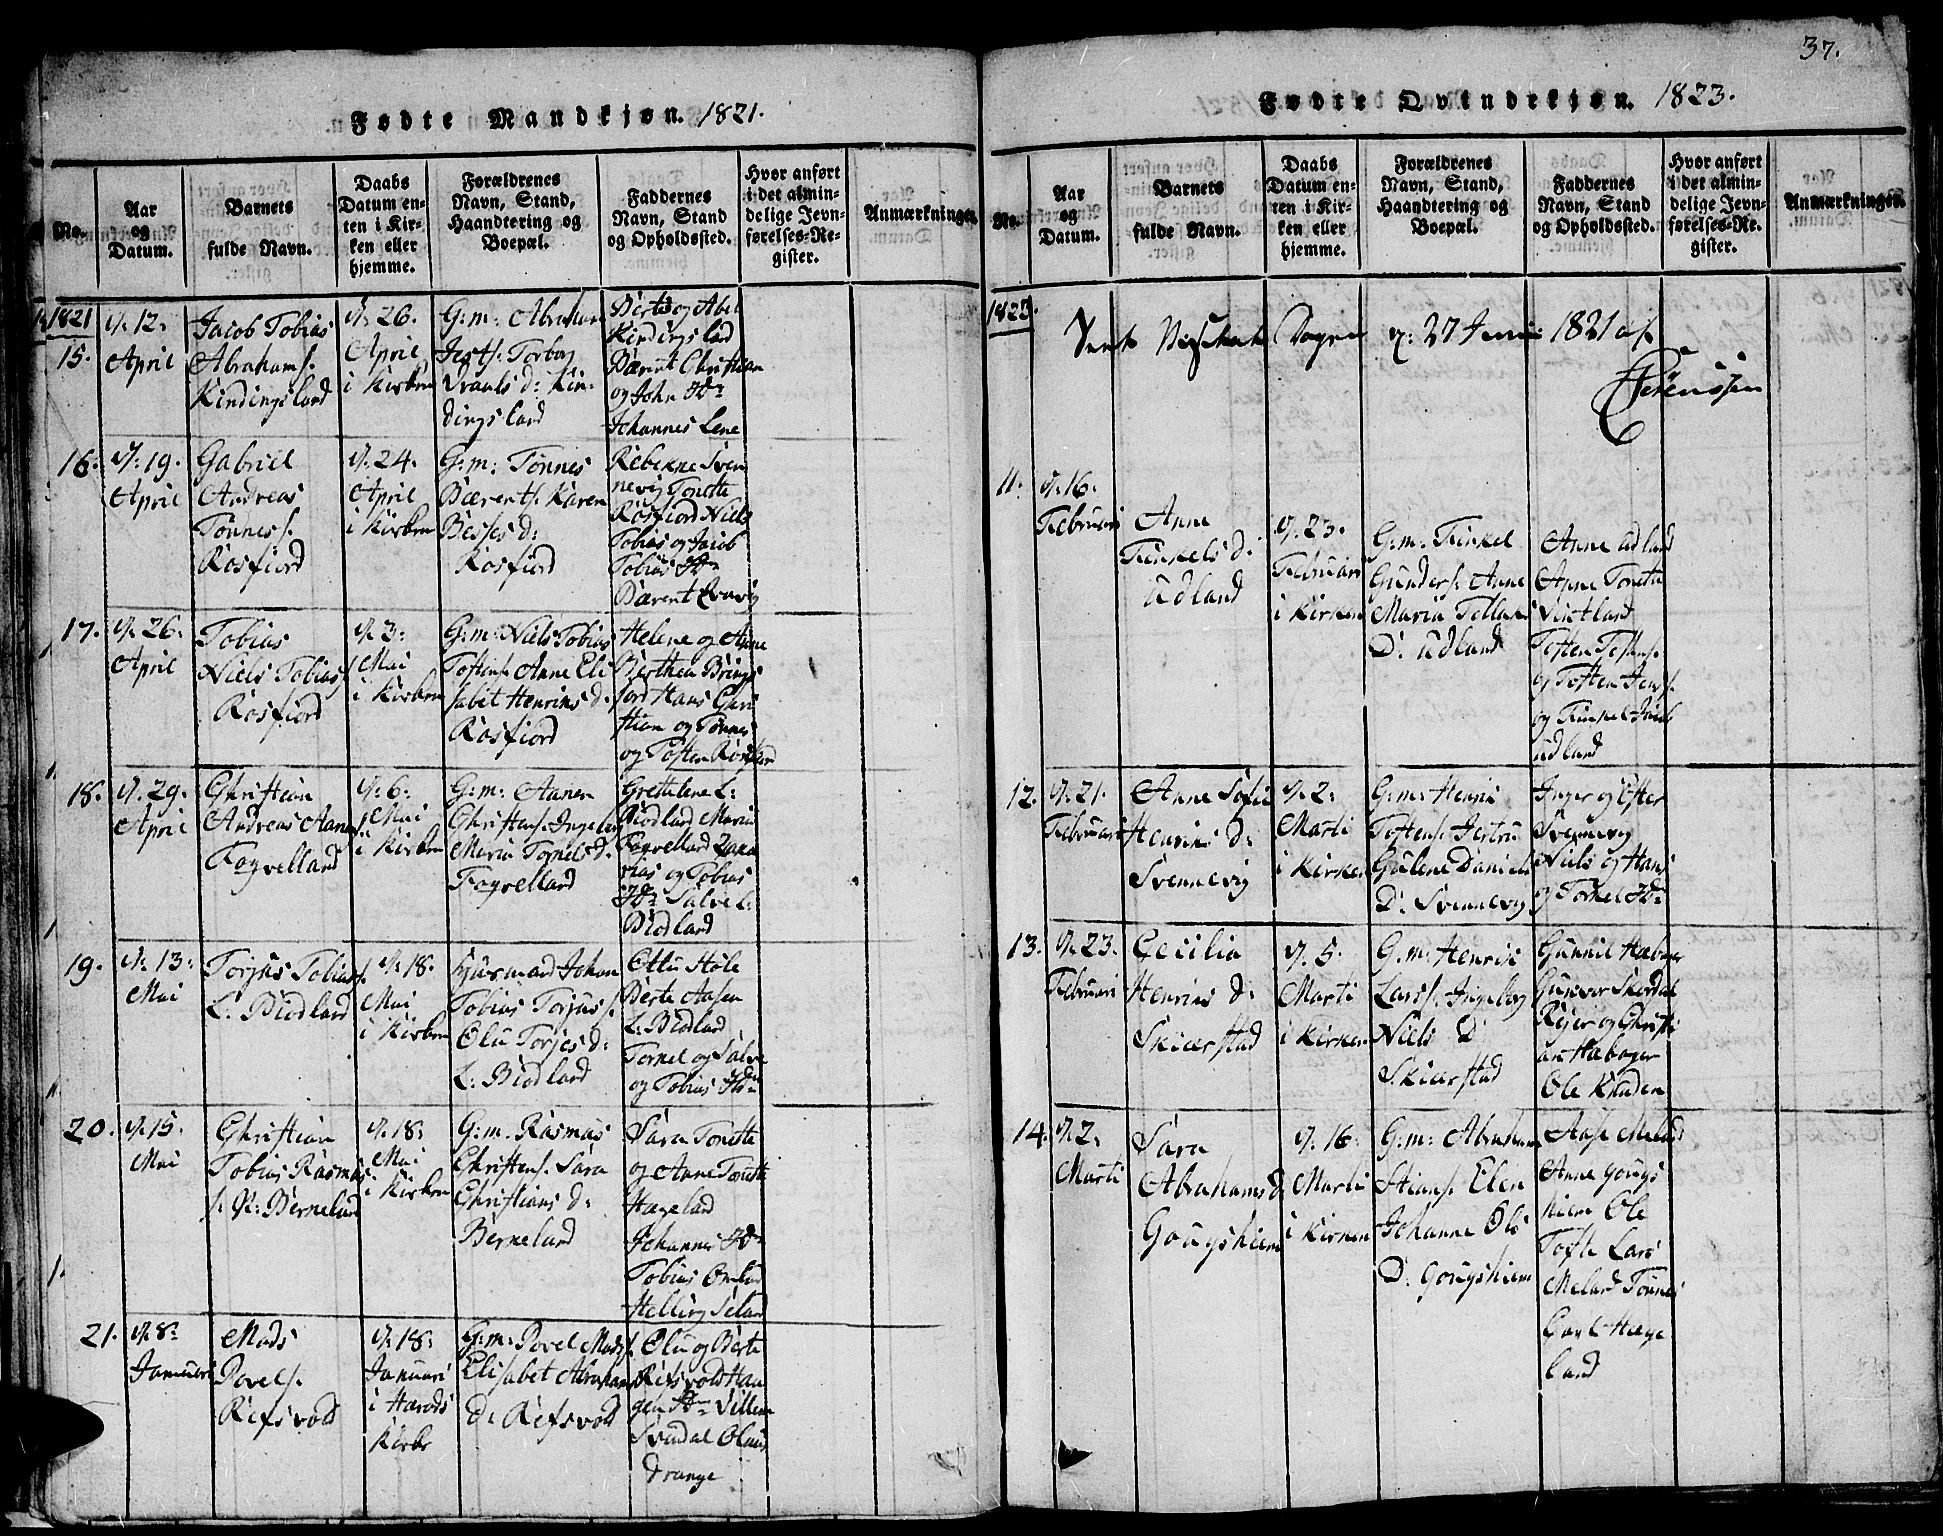 Fødte Mandkjøn. 1821.
No.
Aar
og
Datum.
Barnets
fulde Navn.
Daabs
Datum en-
ten i Kir-
ken eller
hjemme.
Forældrenes
Navn, Stand,
Haandtering og
Boepæl.
Faddernes
Navn, Stand
og Opholdssted.
Hvor anført
i det almin-
delige Jevn-
førelses-Re-
gister.
Anmærkninger.
1821
15.
d: 12:
April
Jacob Tobias
Abrahams.
Kindingsland
d: 26.
April
i Kirken
G: m: Abraham
Jests: Torbor
d: Kin-
dingsland
Berte og Abel
Kindingsland
Bærent Christian
og John Ibm
Johannes Lene
16.
d: 19.
April
Gabriel
Andreas
Tønnes s.
Rosfiord
d: 24.
April
i Kirken
G: m: Tønnes
Bærents. Karen
Besses d:
Rosfiord
Rebekne Sven
nevig Tonette
Rosfiord Niels
Tobias og Jacob
Tobias Ibm
Bærent
17.
d. 26.
April
Tobias
Niels Tobias s.
Rosfiord
d. 3:
Mai
i Kirken
G: m: Niels Tobias
Tostens. Anne Eli
sabet Henriks d:
Rosfiord
Helene og Anne
Berthea Brings
iord Hans Chri
stian og Tønnes
og Tosten Rosfior
18.
d. 29.
April
Christian
Andreas Aanen
Fogvelland
d. 6:
Mai
i Kirken
G: m: Aanen
Christens. Ingebor
Maria Torkels d:
Fogvelland
Grethelene L:
Biodland Maria
Fogvelland Zaka
rias og Tobias
Ibm Salve L:
Biodland
19.
d: 13:
Mai
Torjus Tobias s.
L: Biodland
d. 18.
Mai
i Kirken
Huusmand Johan
Tobias Torjus s.
Olu Torjes d:
L: Biodland
Ollu Høle
Berte Aasen
L: Biodland
Tornel og Salve
og Tobias Ibm
20.
d. 15.
Mai
Christian
Tobias Rasmus
s. N: Berneland
d. 18:
Mai
i Kirken
G: m. Rasmus
Christens. Sara
Christians d:
Berneland
Sara Tonette
og Anne Tonette
Hægeland
Johannes Ibm
Tobias
Helling Seland
21.
d. 8:
Januari
Mads
Povels.
Refsvold
d. 18:
Januari
i Harods
Kirke
G: m: Povel Mads s.
Elisabet Abrahams
d: Refsvold
Olu og Berte
Refsvold Haa
gen Ibm Villem
Svindal Olaus
Drange
37.
Fødte Qvindekjøn. 1823.
No.
Aar
og
Datum.
Barnets
fulde Navn.
Daabs
Datum en-
ten i Kir-
ken eller
hjemme.
Forældrenes
Navn, Stand,
Haandtering og
Boepæl.
Faddernes
Navn, Stand
og Opholdssted.
Hvor anført
i det almin-
delige Jevn-
førelses-Re-
gister.
Anmærkninger.
1823.
d: 27 Juni 1821 af
Sørenssen
11.
d. 16.
Februari
Anne
Tinkels d.
Udland
d. 23.
Februari
i Kirken
G: m. Tinkel
Gunders. Anne
Maria Tollaks
D: Udland
Anne Udland
Anne Tonette
Tosten Tostens.
og Tosten Jens s.
og Tinkel Jacob
Udland
12.
d. 21.
Februari
Anne Sofie
Henriks d:
Svennevig
d. 2:
Marti
i Kirken
G: m: Henrik
Tostens. Jertru
Gulene Daniels
D: Svennevig
Inger og Ester
Svennevig
Niels og Hans
og Tornel Ibm
13.
d. 23.
Februari
Cecilia
Henriks d:
Skierstad
d. 5.
Marti
i Kirken
G. m: Henrik
Lars s. Ingeborg
Niels D:
Skierstad
Gunnil Habager
Gunvor Skordal
Rejer og Christi
an Habager
Ole Knaden
14.
d. 2:
Marti
Sara
Abrahams d.
Gougshiem
d. 16:
Marti
i Kirken
G: m: Abraham
Stians. Elen
Johanne Ols
D: Gougshiem
Aase Meland
Anne Gougs
hiem Ole
Tofte Lars
Meland Tønnes
Carl Hæge
land